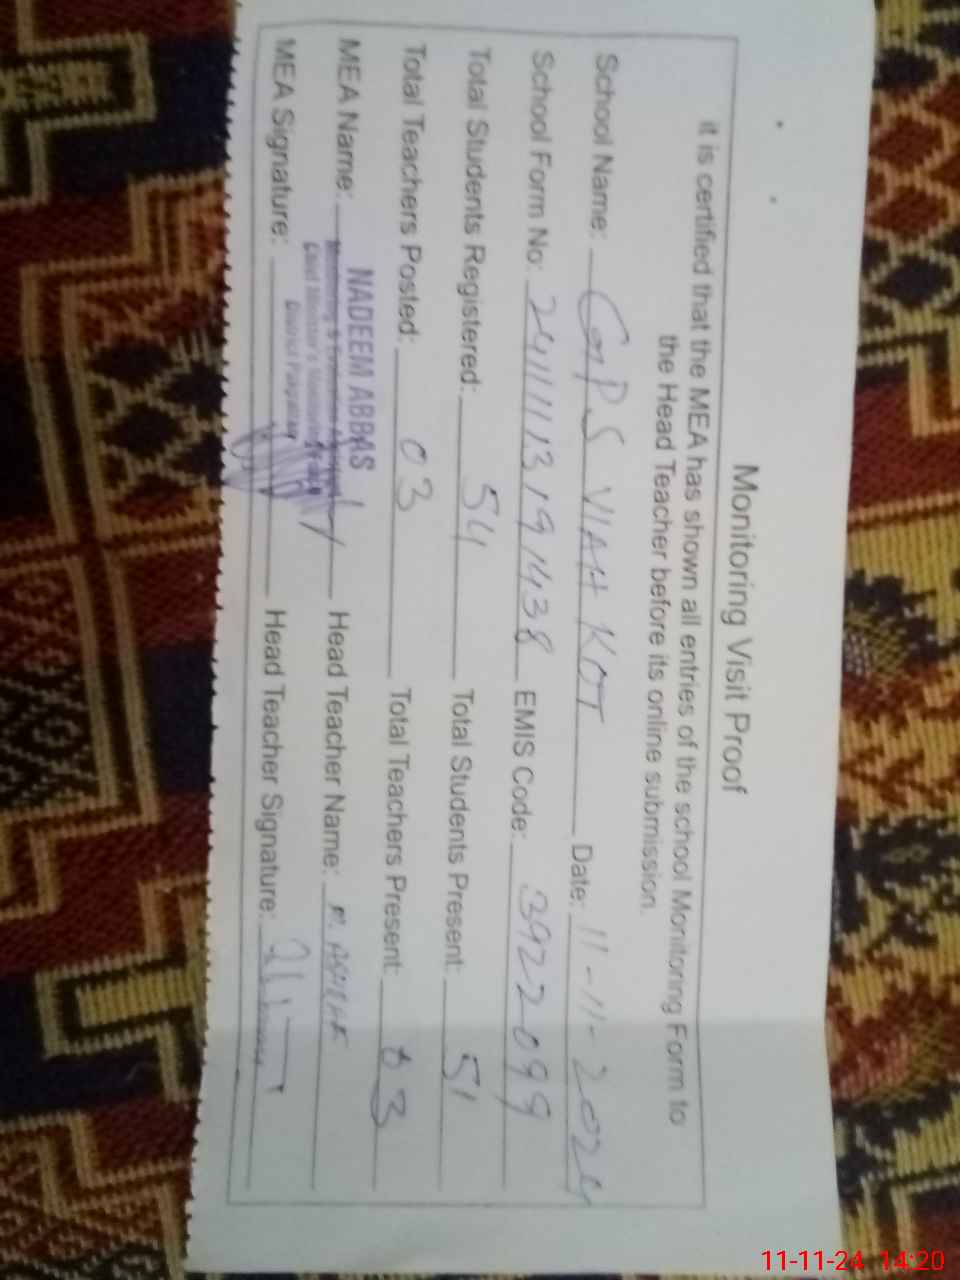 Monitoring Visit Proof
it is certified that the MEA has shown all entries of the school Monitoring Form to
the Head Teacher before its online submission.
School Name: GPS VIAH KOT Date: 11-11-2024
School Form No: 2411113191438 EMIS Code: 3922099
Total Students Registered: 54 Total Students Present: 51
Total Teachers Posted: 03 Total Teachers Present: 03
MEA Name: NADEEM ABBAS Head Teacher Name: M. ASHRAF
Monitoring & Evaluation
Chief Minister's Monitoring
District Pakpattan
MEA Signature: Head Teacher Signature:
11-11-24 14:20